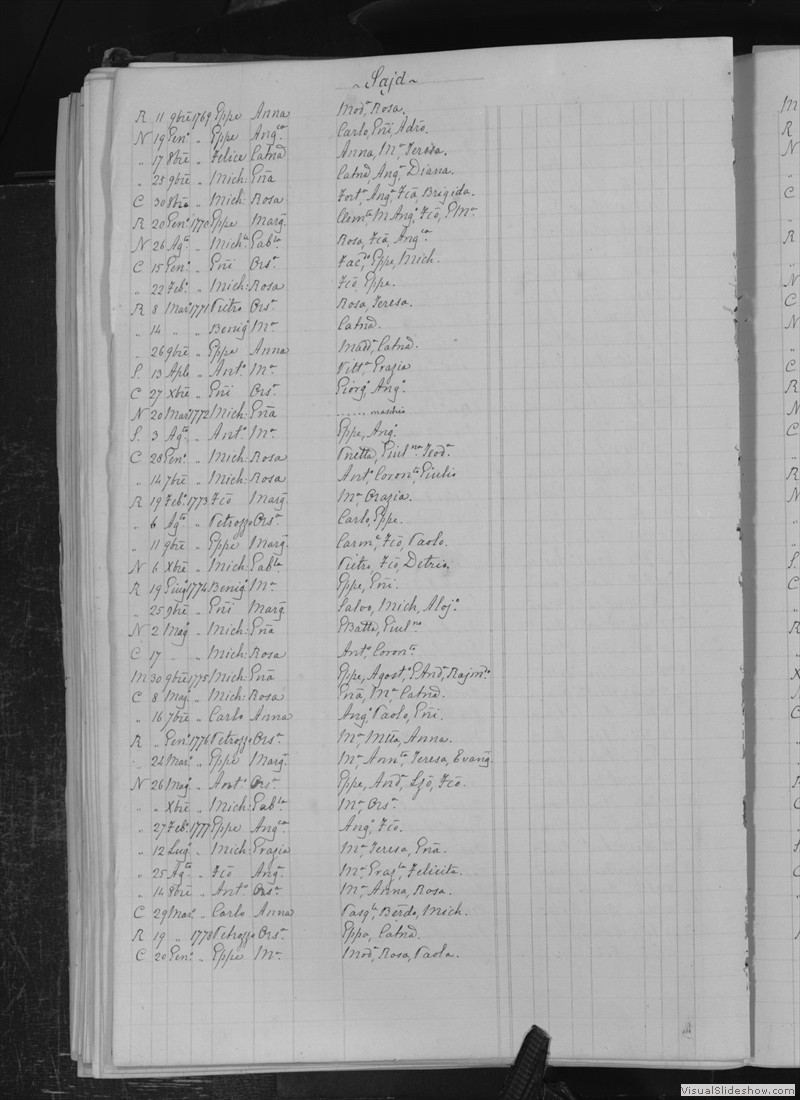 ~ Sajd ~
R 11 9bre 1769 Gppe Anna Mod.a Rosa.
N 19 Gen.o „ Gppe Ang.ca Carlo, Gni Adro.
„ 17 8bre „ Felice Catnã Anna, M.a Teresa.
„ 25 9bre „ Mich: Gnã Catnã Ang.a Diana.
C 30 8bre „ Mich: Rosa Fort.a Ang.o Fcõ, Brigida.
R 20 Gen.o 1770 Gppe Marg.
N 26 Ag.to „ Mich: Gab.la Rosa, Fcã, Ang.ca
C 15 Gen.o „ Gni Ors.a Gppe, Mich.
„ 22 Feb.o „ Mich: Rosa Fcõ, Gppe.
R 8 Mar. 1771 Pietro Ors.a Rosa, Teresa.
„ 14 „ „ Benig.o M.a Catnã.
„ 26 9bre „ Gppe Anna Madd.a, Catnã.
S. 13 Aple „ Ant.o M.a Vitt.a Grazia
C 27 Xbre „ Gni Ors.a Giorg.o Ang.o
N 20 Mar. 1772 Mich: Gnã ...... maschio
S. 3 Ag.to „ Ant.o M.a Gppe, Ang.o
C 28 Gen.o „ Mich: Rosa
„ 14 7bre „ Mich: Rosa Ant.o Coron.ta, Giulio
R 19 Feb.o 1773 Fcõ Marg. M.a Grazia.
„ 6 Ag.to „ Petrozzo Ors.a Carlo, Gppe.
„ 11 9bre „ Gppe Marg. Carm.e, Fcõ, Paolo.
N 6 Xbre „ Mich: Gab.la Pietro, Fcõ,
R 19 Giug. 1774 Benig.o M.a Gppe, Gni.
„ 25 9bre „ Gni Marg. Salvo, Mich, Aloj.o
N 2 Mag. „ Mich: Gnã GBatta, Giul.no
C 17 „ „ Mich: Rosa Ant.o, Coron.ta
M 30 9bre 1775 Mich: Gnã Gppe, Agost.o
C 8 Mag. „ Mich: Rosa Gnã, M.a Catnã.
„ 16 7bre „ Carlo Anna Ang.o Paolo, Gni.
R „ Gen.o 1776 Petrozzo Ors.a M.a Anna.
„ 24 Mar. „ Gppe Marg. M.a Ann.ta, Teresa, Evang.
N 26 Mag. „ Ant.o Ors.a Gppe, And.a Fcõ.
„ „ Xbre „ Mich: Gab.la M.a Ors.a
„ 27 Feb.o 1777 Gppe Ang.ca Ang.o, Fcõ.
„ 12 Lug. „ Mich: Grazia M.a Teresa, Gnã.
„ 25 Ag.to „ Fcõ Ang.a M.a Graz.la, Felicita.
„ 14 8bre „ Ant.o Ors.a M.a Anna, Rosa.
C 29 Mar. „ Carlo Anna Pasq.le Berdo, Mich.
R 19 „ 1778 Petrozzo Ors.a Gppa, Catnã.
C 20 Gen.o „ Gppe M.a Mod.a, Rosa, Paola.
VisualSlideshow.com